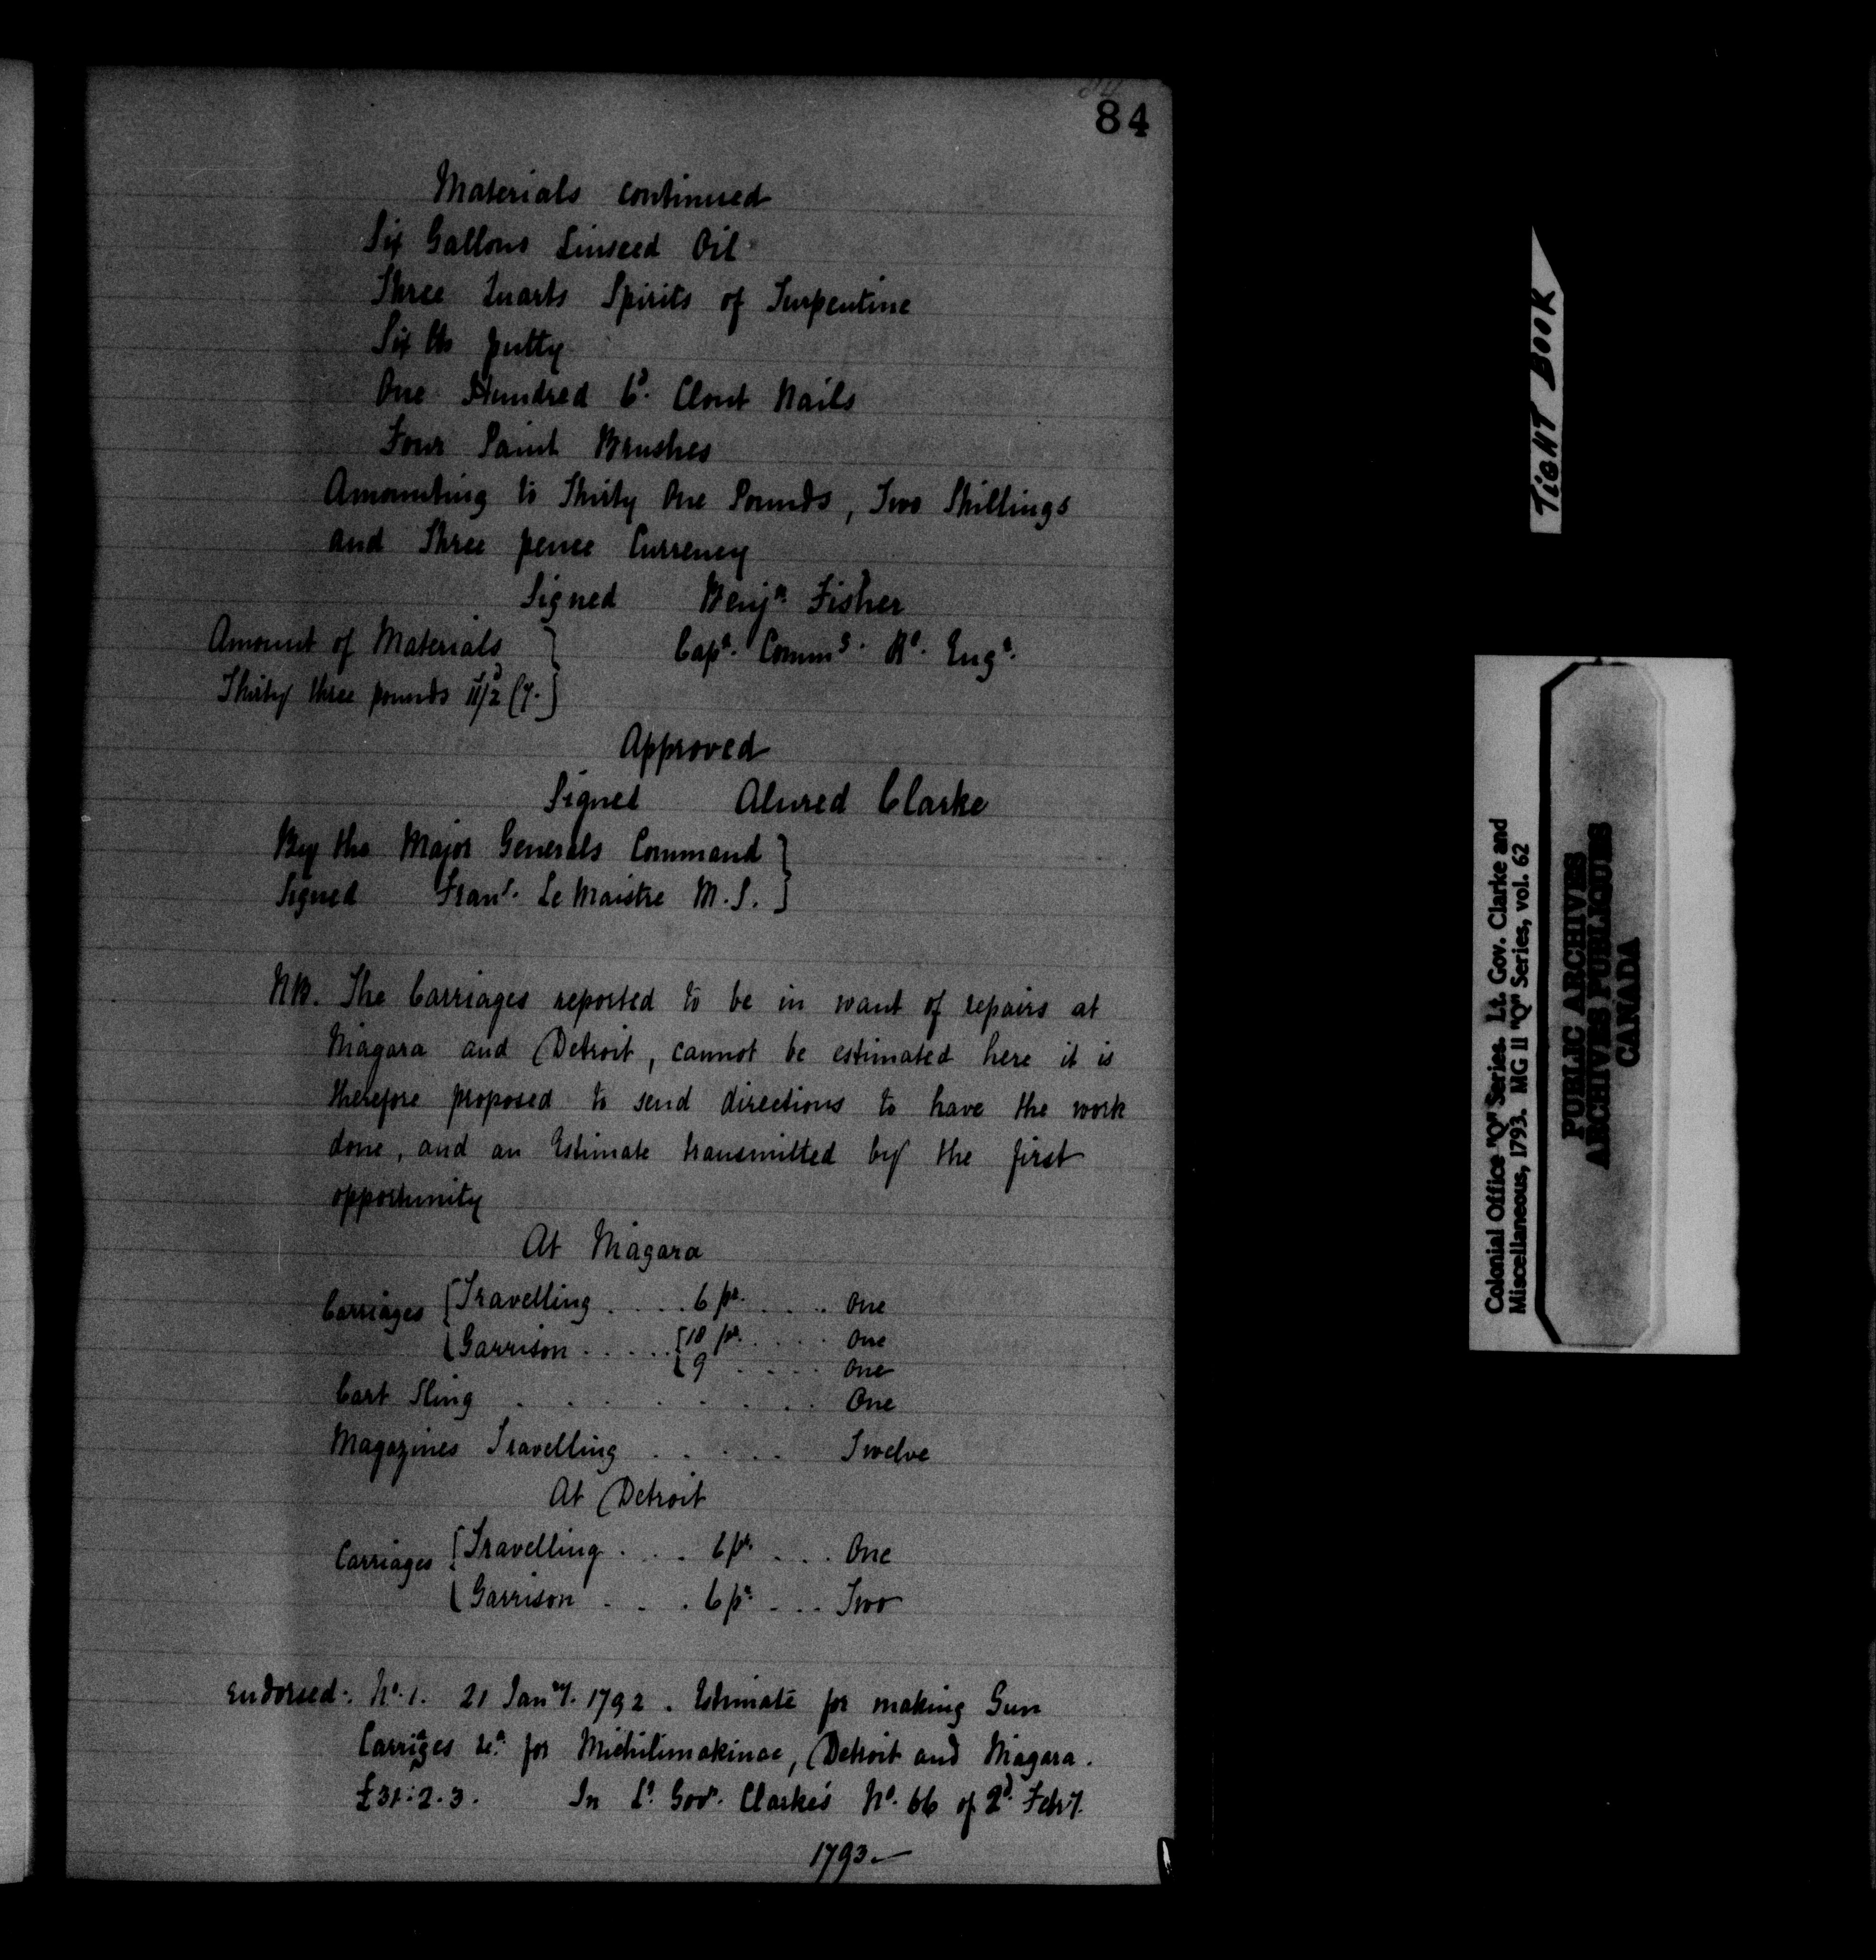 84
Materials continued
Six Gallons Linseed Oil
Three Quarts Spirits of Turpentine
Six lbs putty
One Hundred 6d. Clout Nails
Four Paint Brushes
Amounting to Thirty One Pounds, Two Shillings
and Three pence Currency
Signed Benjn. Fisher
Capt. Commg. Rl. Engs.
Amount of Materials
Thirty three pounds
Approved
Signed Alured Clarke
By the Major Generals Command
Signed Frans. Le Maistre M.S.
NB. The Carriages reported to be in want of repairs at
Niagara and Detroit, cannot be estimated here it is
therefore proposed to send directions to have the work
done, and an Estimate transmitted by the first
opportunity
At Niagara
Carriages { Travelling .... 6 pr. .... One
{ Garrison ..... { 18 pr. .... One
{ 9 .... One
Cart Sling . . . . . . . One
Magazines Travelling . . . . Twelve
At Detroit
Carriages { Travelling .... 6 pr. .... One
{ Garrison . . . 6 pr. ... Two
Endorsed:. No. 1. 21 Jany. 1792. Estimate for making Gun
Carriages &ca. for Michilimakinac, Detroit and Niagara.
£31:2.3. In Lt. Govr. Clarke's No. 66 of 2d. Feby.
1793.—
TIGHT BOOK
Colonial Office "Q" Series. Lt. Gov. Clarke and
Miscellaneous, 1793. MG 11 "Q" Series, vol. 62
PUBLIC ARCHIVES
ARCHIVES PUBLIQUES
CANADA